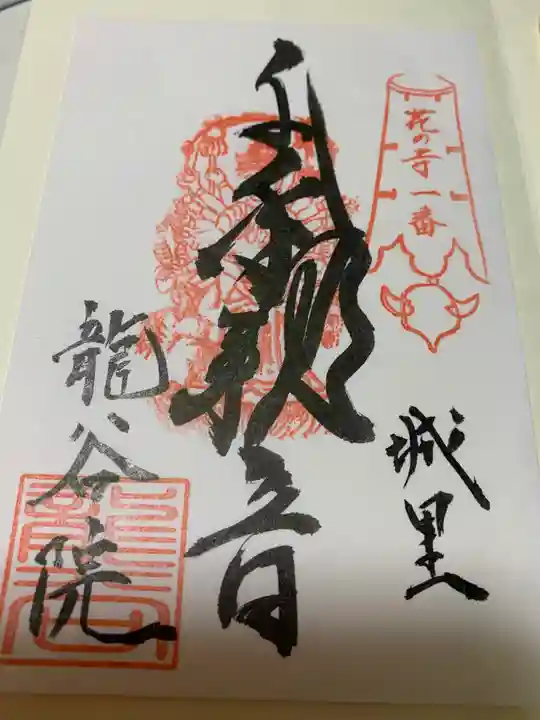 花の寺一番
城里
観音
龍谷院